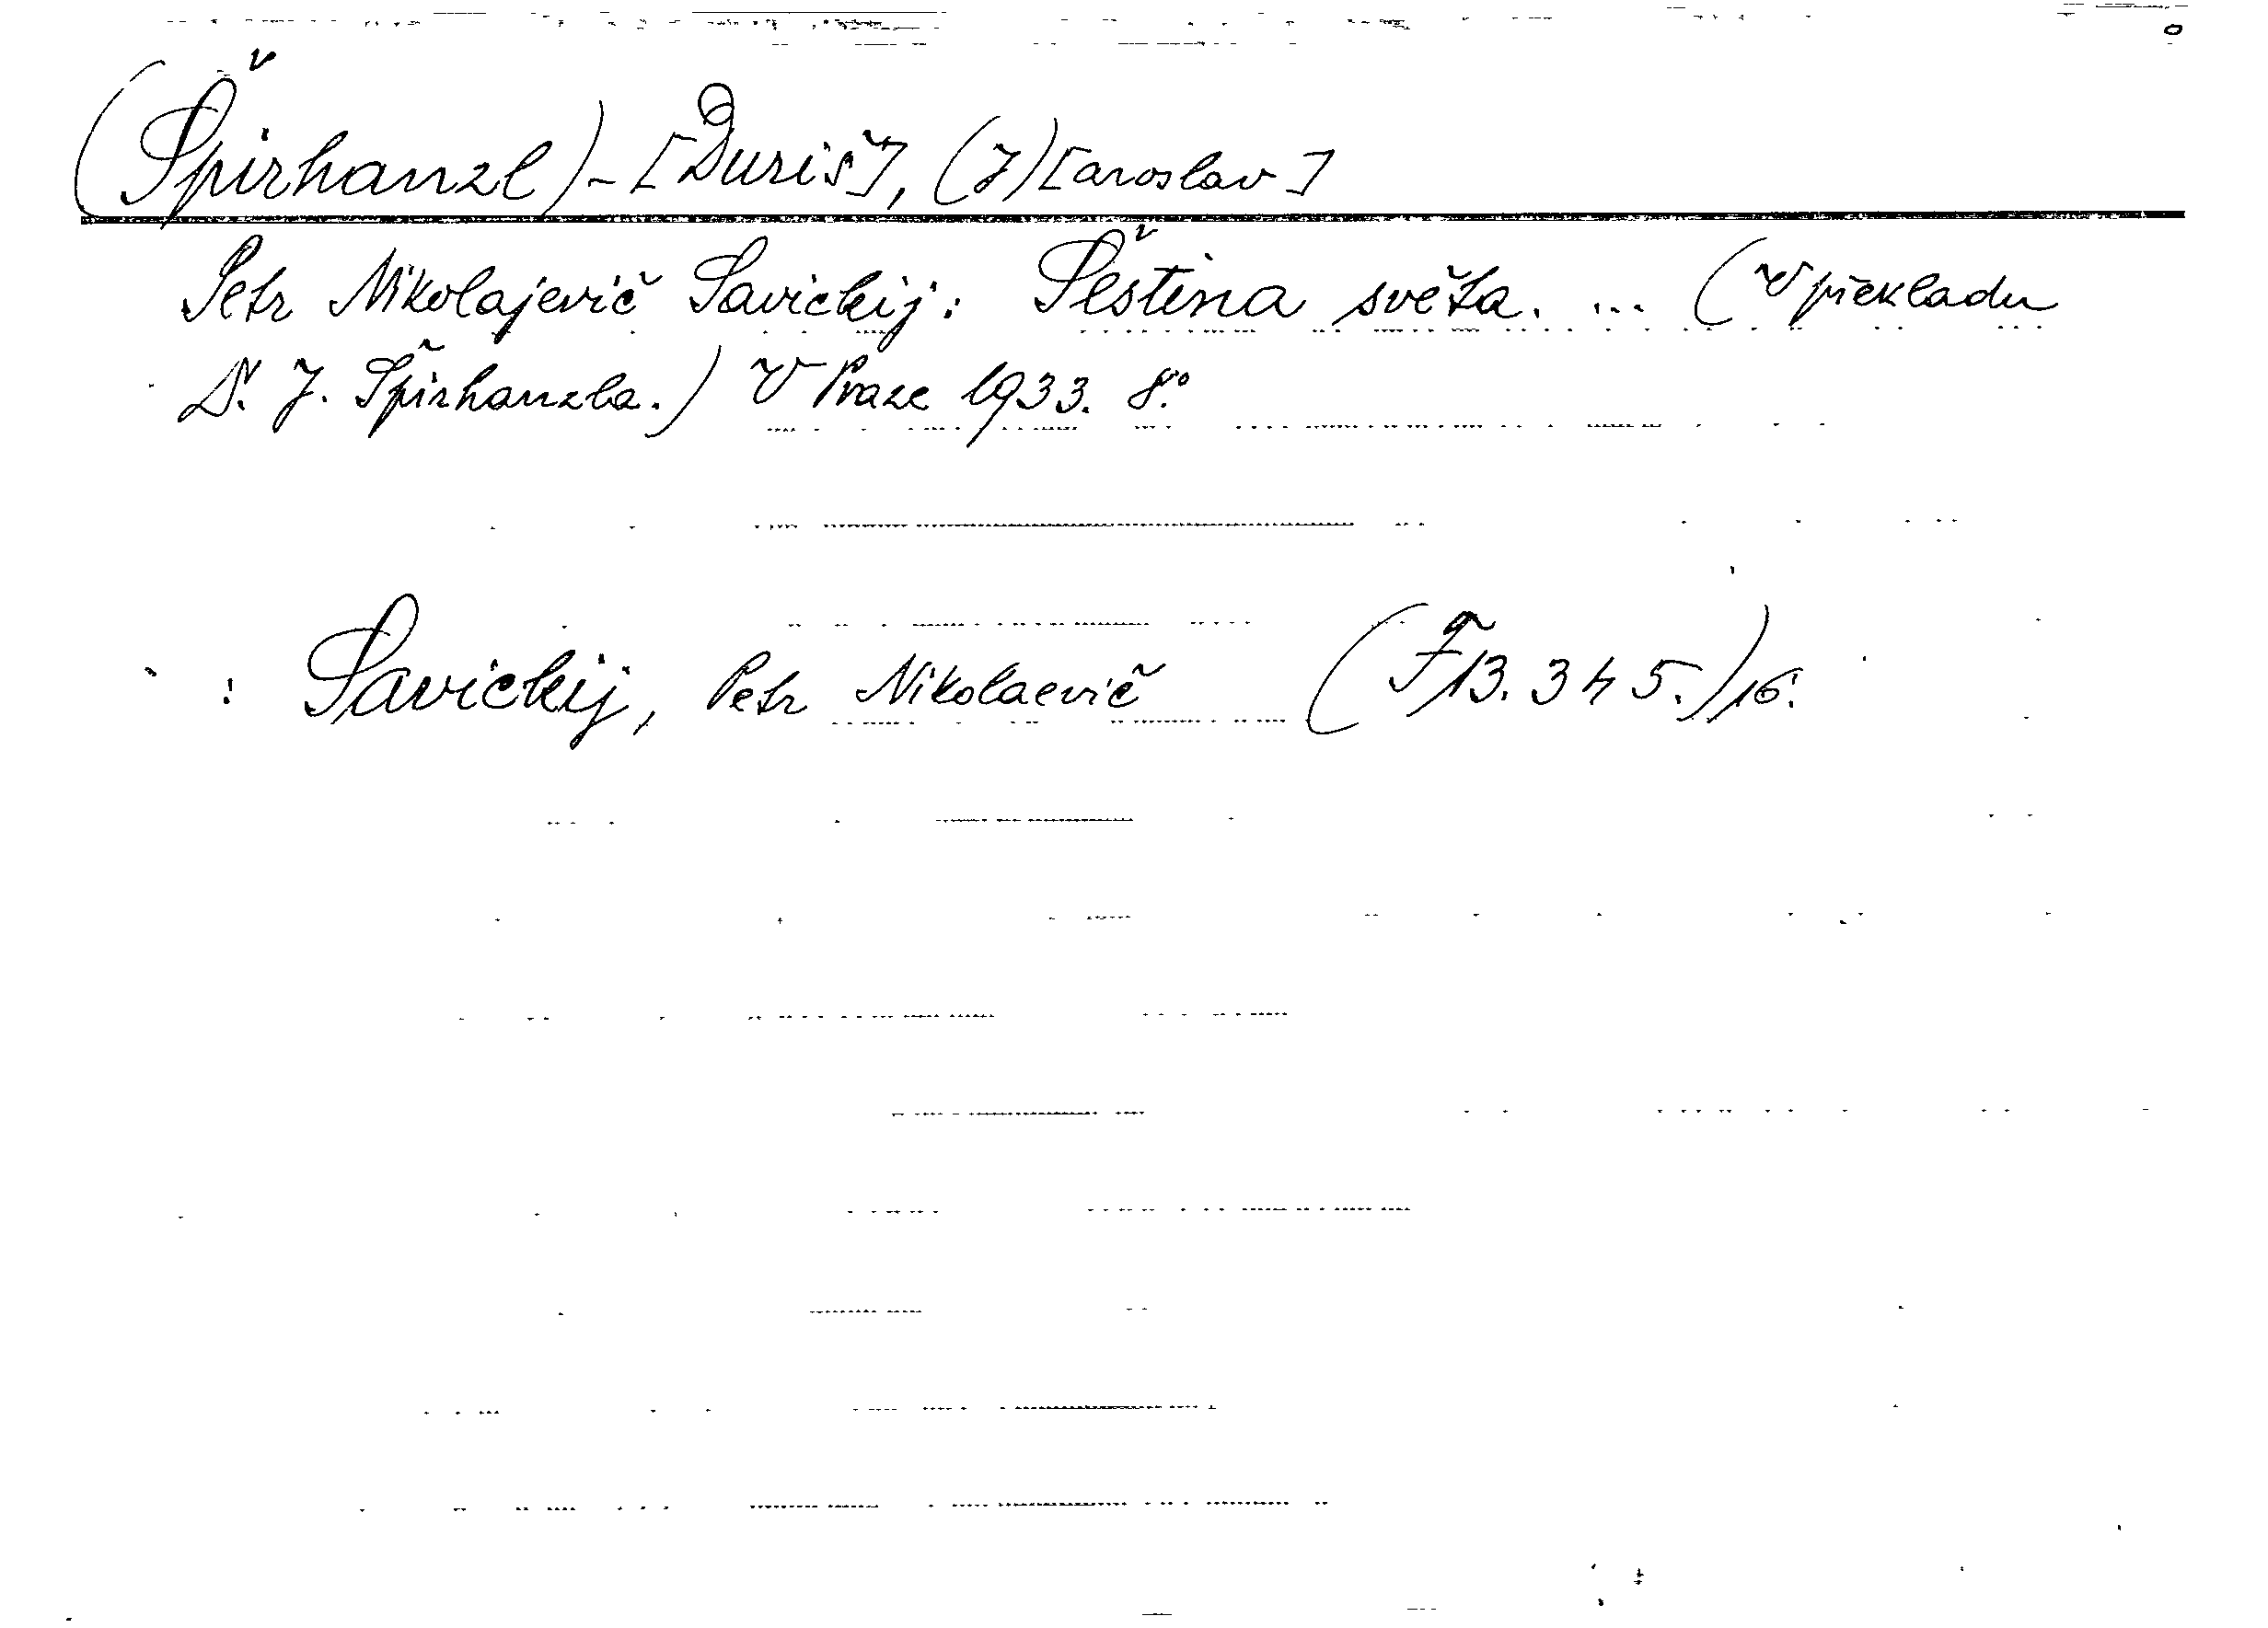 (Špirhanzl)-[Duriš], (J)[aroslav]
Petr Nikolajevič Savickij: Šestina světa. ... (V překladu
D. J. Špirhanzla.) V Praze 1933. 8°.
: Savickij, Petr Nikolaevič (F 13.345.)/16.